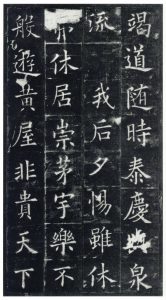 竭道随時泰慶與泉
流 我后夕惕雖休
弗休居崇茅宇樂不
般遊黄屋非貴天下